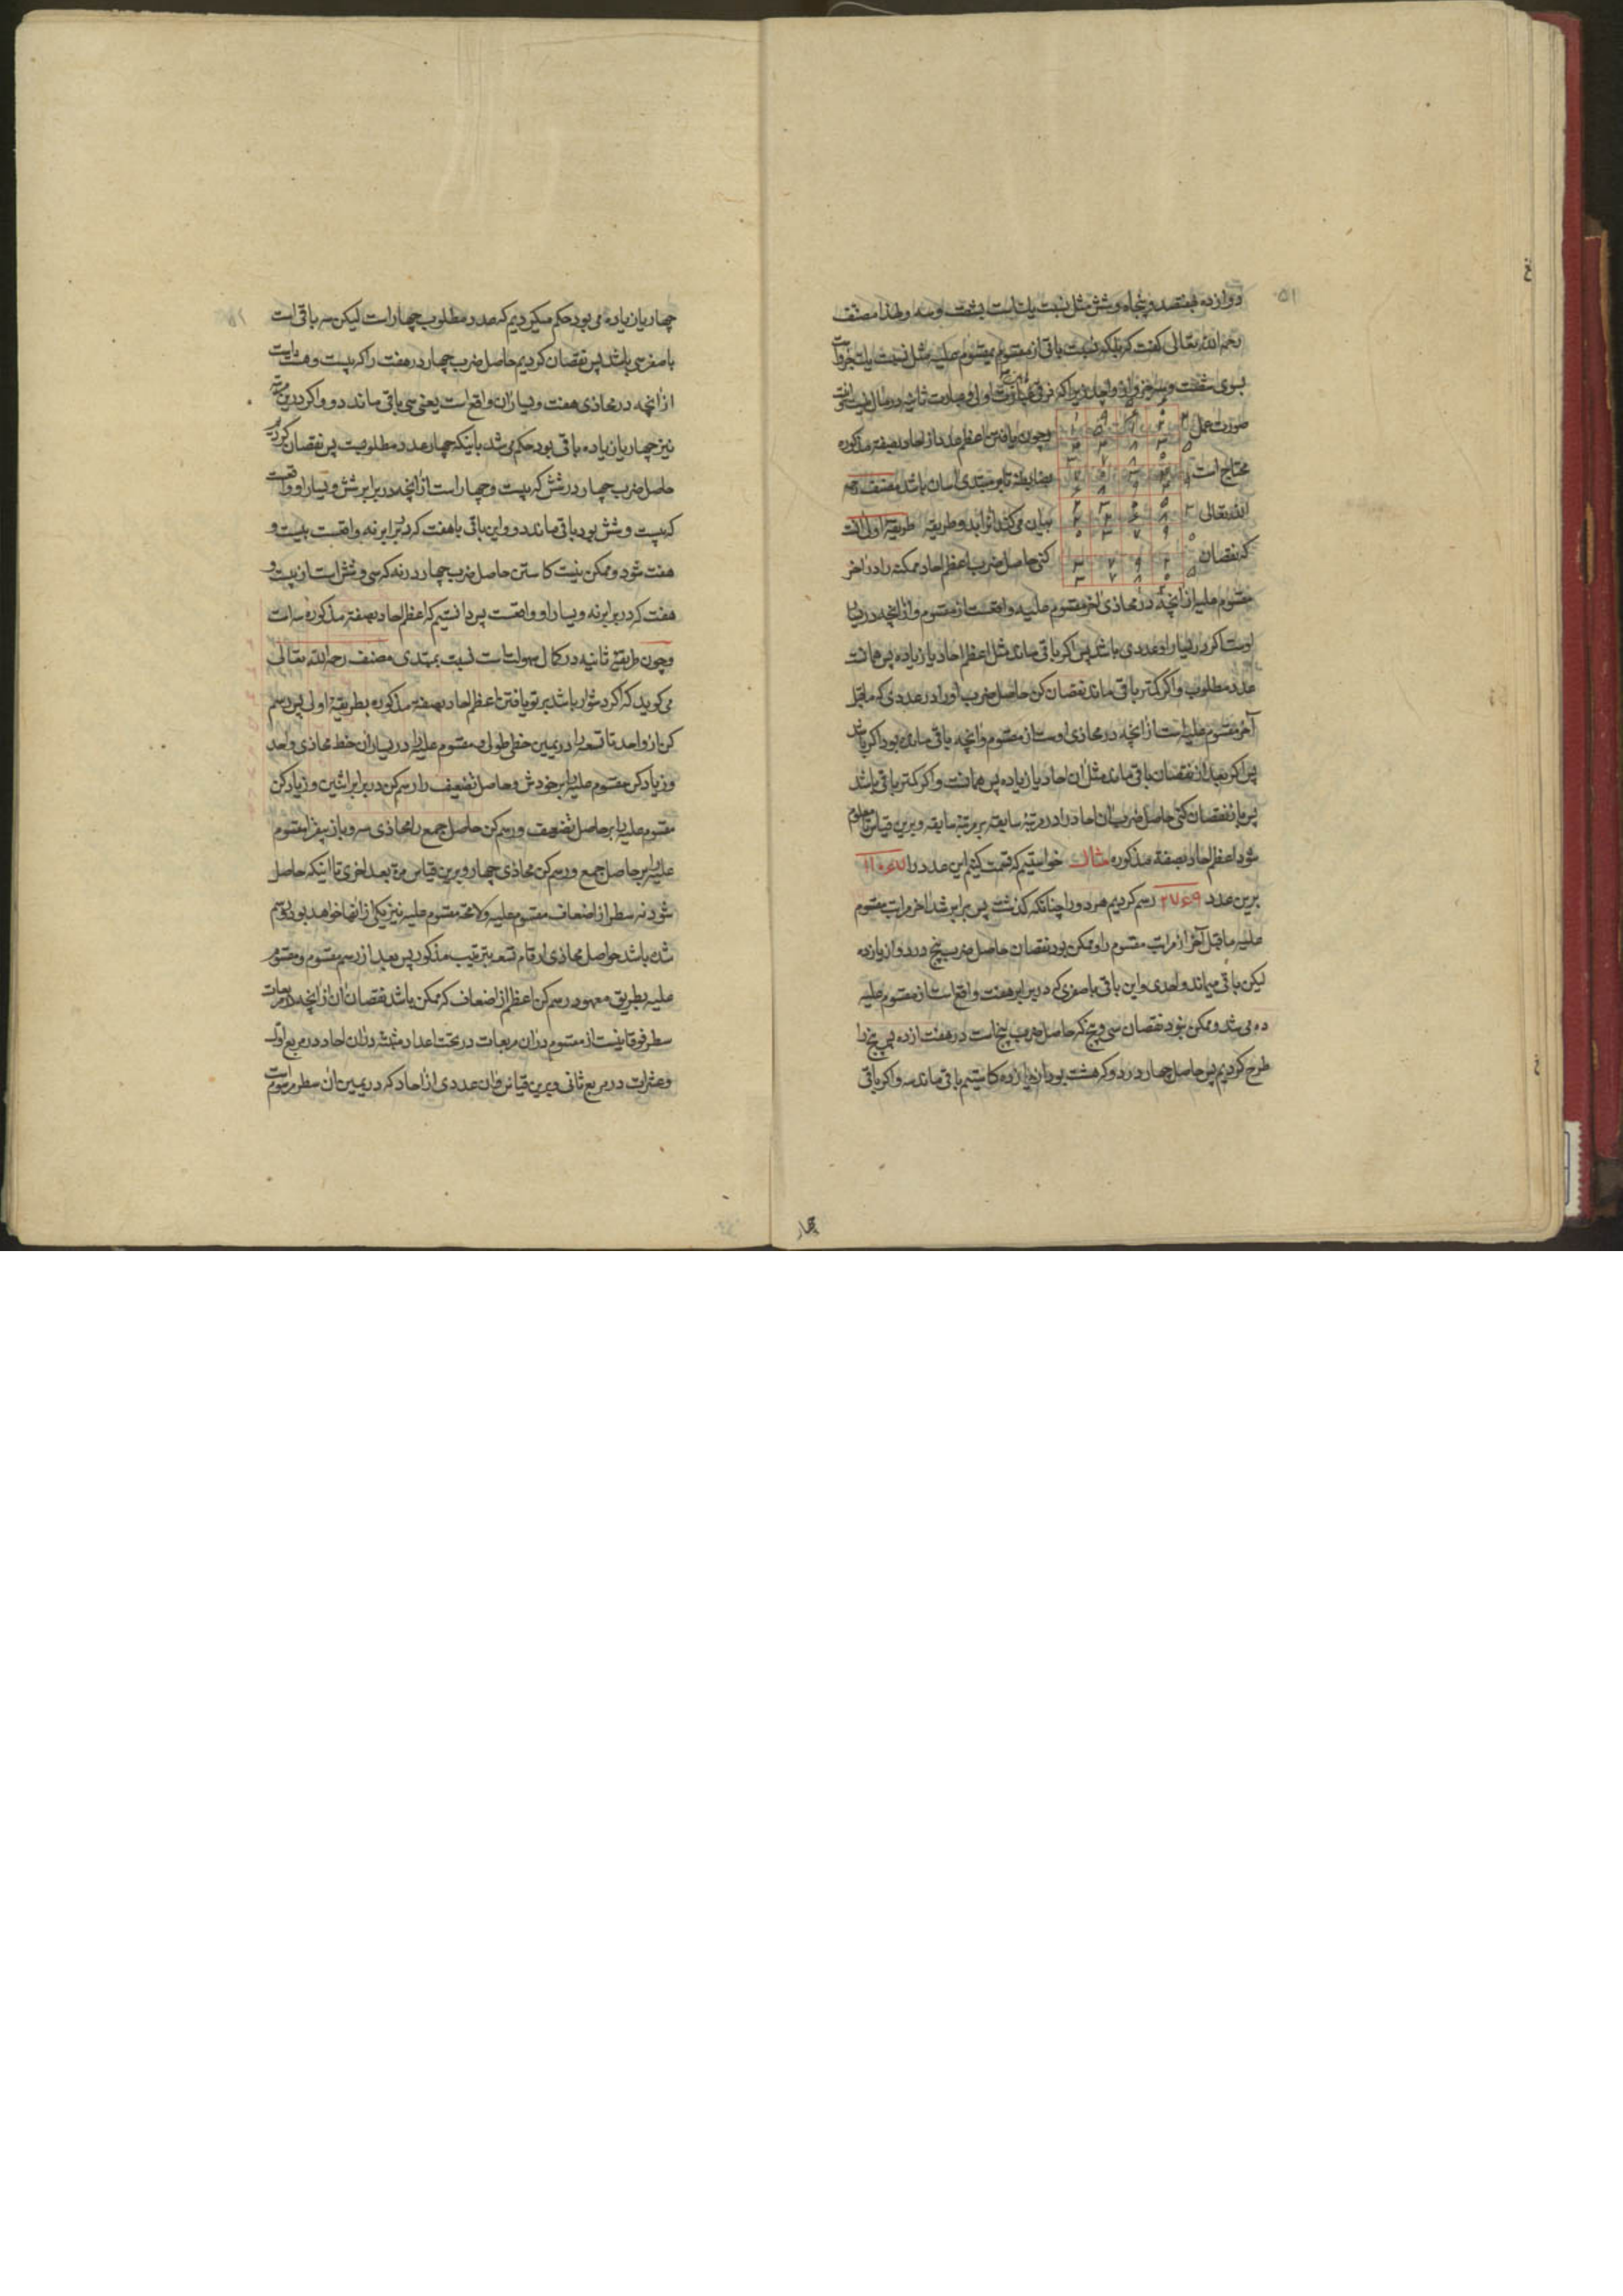 ۵۱
دوازده هفتصد و پنجاه و شش مثل نسبت یکست بشصت و سه و لهذا مصنف
رحمه الله تعالی گفت که بلکه نسبت باقی از مقسوم بمقسوم علیه مثل نسبت یک جزو است
بسوی شصت و سه جزو از واحد زیرا که فرقی عبارت اولی و عبارت ثانیه در مثال نیست
صورت عمل و چون یافتن اعظم عدد از احاد بصفة مذکوره
محتاج است بضابطه تا بر مبتدی آسان باشد مصنف رحمه
الله تعالی بیان می‌کند از برای او دو طریقه طریقه اولی آنست
که نقصان کنی حاصل ضرب اعظم احاد ممکنه را در آخر
مقسوم علیه از آنچه در محاذی آخر مقسوم علیه واقعست از مقسوم و از آنچه در یسار
اوست اگر در یسار او عددی باشد پس اگر باقی ماند مثل اعظم احاد یا زیاده پس همانست
عدد مطلوب و اگر کمتر باقی ماند نقصان کن حاصل ضرب او را در عددی که ماقبل
آخر مقسوم علیه است از آنچه در محاذی اوست از مقسوم و آنچه باقی مانده بود اگر باشد
پس اگر بعد از نقصان باقی ماند مثل آن احاد یا زیاده پس همانست و اگر کمتر باقی باشد
پس باز نقصان کنی حاصل ضرب آن احاد را در مرتبهٔ سابقه بر مرتبهٔ سابقه و برین قیاس تا معلوم
شود اعظم احاد بصفة مذکوره مثال خواستیم که قسمت کنیم این عدد را
برین عدد ۲۷۶۹ رسم کردیم هر دو را چنانکه گذشت پس برابر شد آخر مراتب مقسوم
علیه ماقبل آخر از مراتب مقسوم را و ممکن بود نقصان حاصل ضرب پنج در دو از یازده
لیکن باقی میماند واحدی و این باقی با صفری که در برابر هفت واقع است از مقسوم علیه
ده می شد و ممکن نبود نقصان سی و پنج که حاصل ضرب پنج است در هفت از ده پس پنج را
طرح کردیم پس حاصل چهار در دو که هشت بود از یازده کاستیم باقی ماند سه و اگر باقی
چهار
چهار یا زیاده می بود حکم میکردیم که عدد مطلوب چهار است لیکن سه باقی است
با صفر سی باشد پس نقصان کردیم حاصل ضرب چهار در هفت را که بیست و هشت است
از آنچه در محاذی هفت و یسار آن واقع است یعنی سی باقی ماند دو و اگر درین مرتبه
نیز چهار یا زیاده باقی بود حکم می شد باینکه چهار عدد مطلوبست پس نقصان کردیم
حاصل ضرب چهار در شش که بیست و چهار است از آنچه در برابر شش و یسار او واقعست
که بیست و شش بود باقی ماند دو و این باقی با هفت که در برابر نه واقعست بیست و
هفت شود و ممکن نیست کاستن حاصل ضرب چهار در نه که سی و شش است از بیست و
هفت که در برابر نه و یسار او واقعست پس دانستیم که اعظم احاد بصفة مذکوره سه است
و چون طریقهٔ ثانیه در کمال سهولت است نسبت بمبتدی مصنف رحمه الله تعالی
می گوید که اگر دشوار باشد بر تو یافتن اعظم احاد بصفه مذکوره بطریقهٔ اولی پس رسم
کن از واحد تا تسعه را در یمین خطی طولی و مقسوم علیه را در یسار آن خط محاذی واحد
و زیاد کن مقسوم علیه را بر خودش و حاصل تضعیف را رسم کن در برابر اثنین و زیاد کن
مقسوم علیه را بر حاصل تضعیف و رسم کن حاصل جمع را محاذی سه و باز بیفزا مقسوم
علیه را بر حاصل جمع و رسم کن محاذی چهار و برین قیاس مرة بعد اخری تا اینکه حاصل
شود نه سطر از اضعاف مقسوم علیه و لامحه مقسوم علیه نیز یکی از آنها خواهد بود و رسم
شده باشد حواصل محاذی ارقام تسعه بترتیب مذکور پس بعد از رسم مقسوم و مقسوم
علیه بطریق معهود رسم کن اعظم از اضعاف که ممکن باشد نقصان آن از آنچه در مربعات
سطر فوقانیست از مقسوم در آن مربعات در تحت اعداد مثبته در آن احاد در مربع اول
و عشرات در مربع ثانی و برین قیاس و آن عددی از احاد که در یمین آن سطر مرسوم است